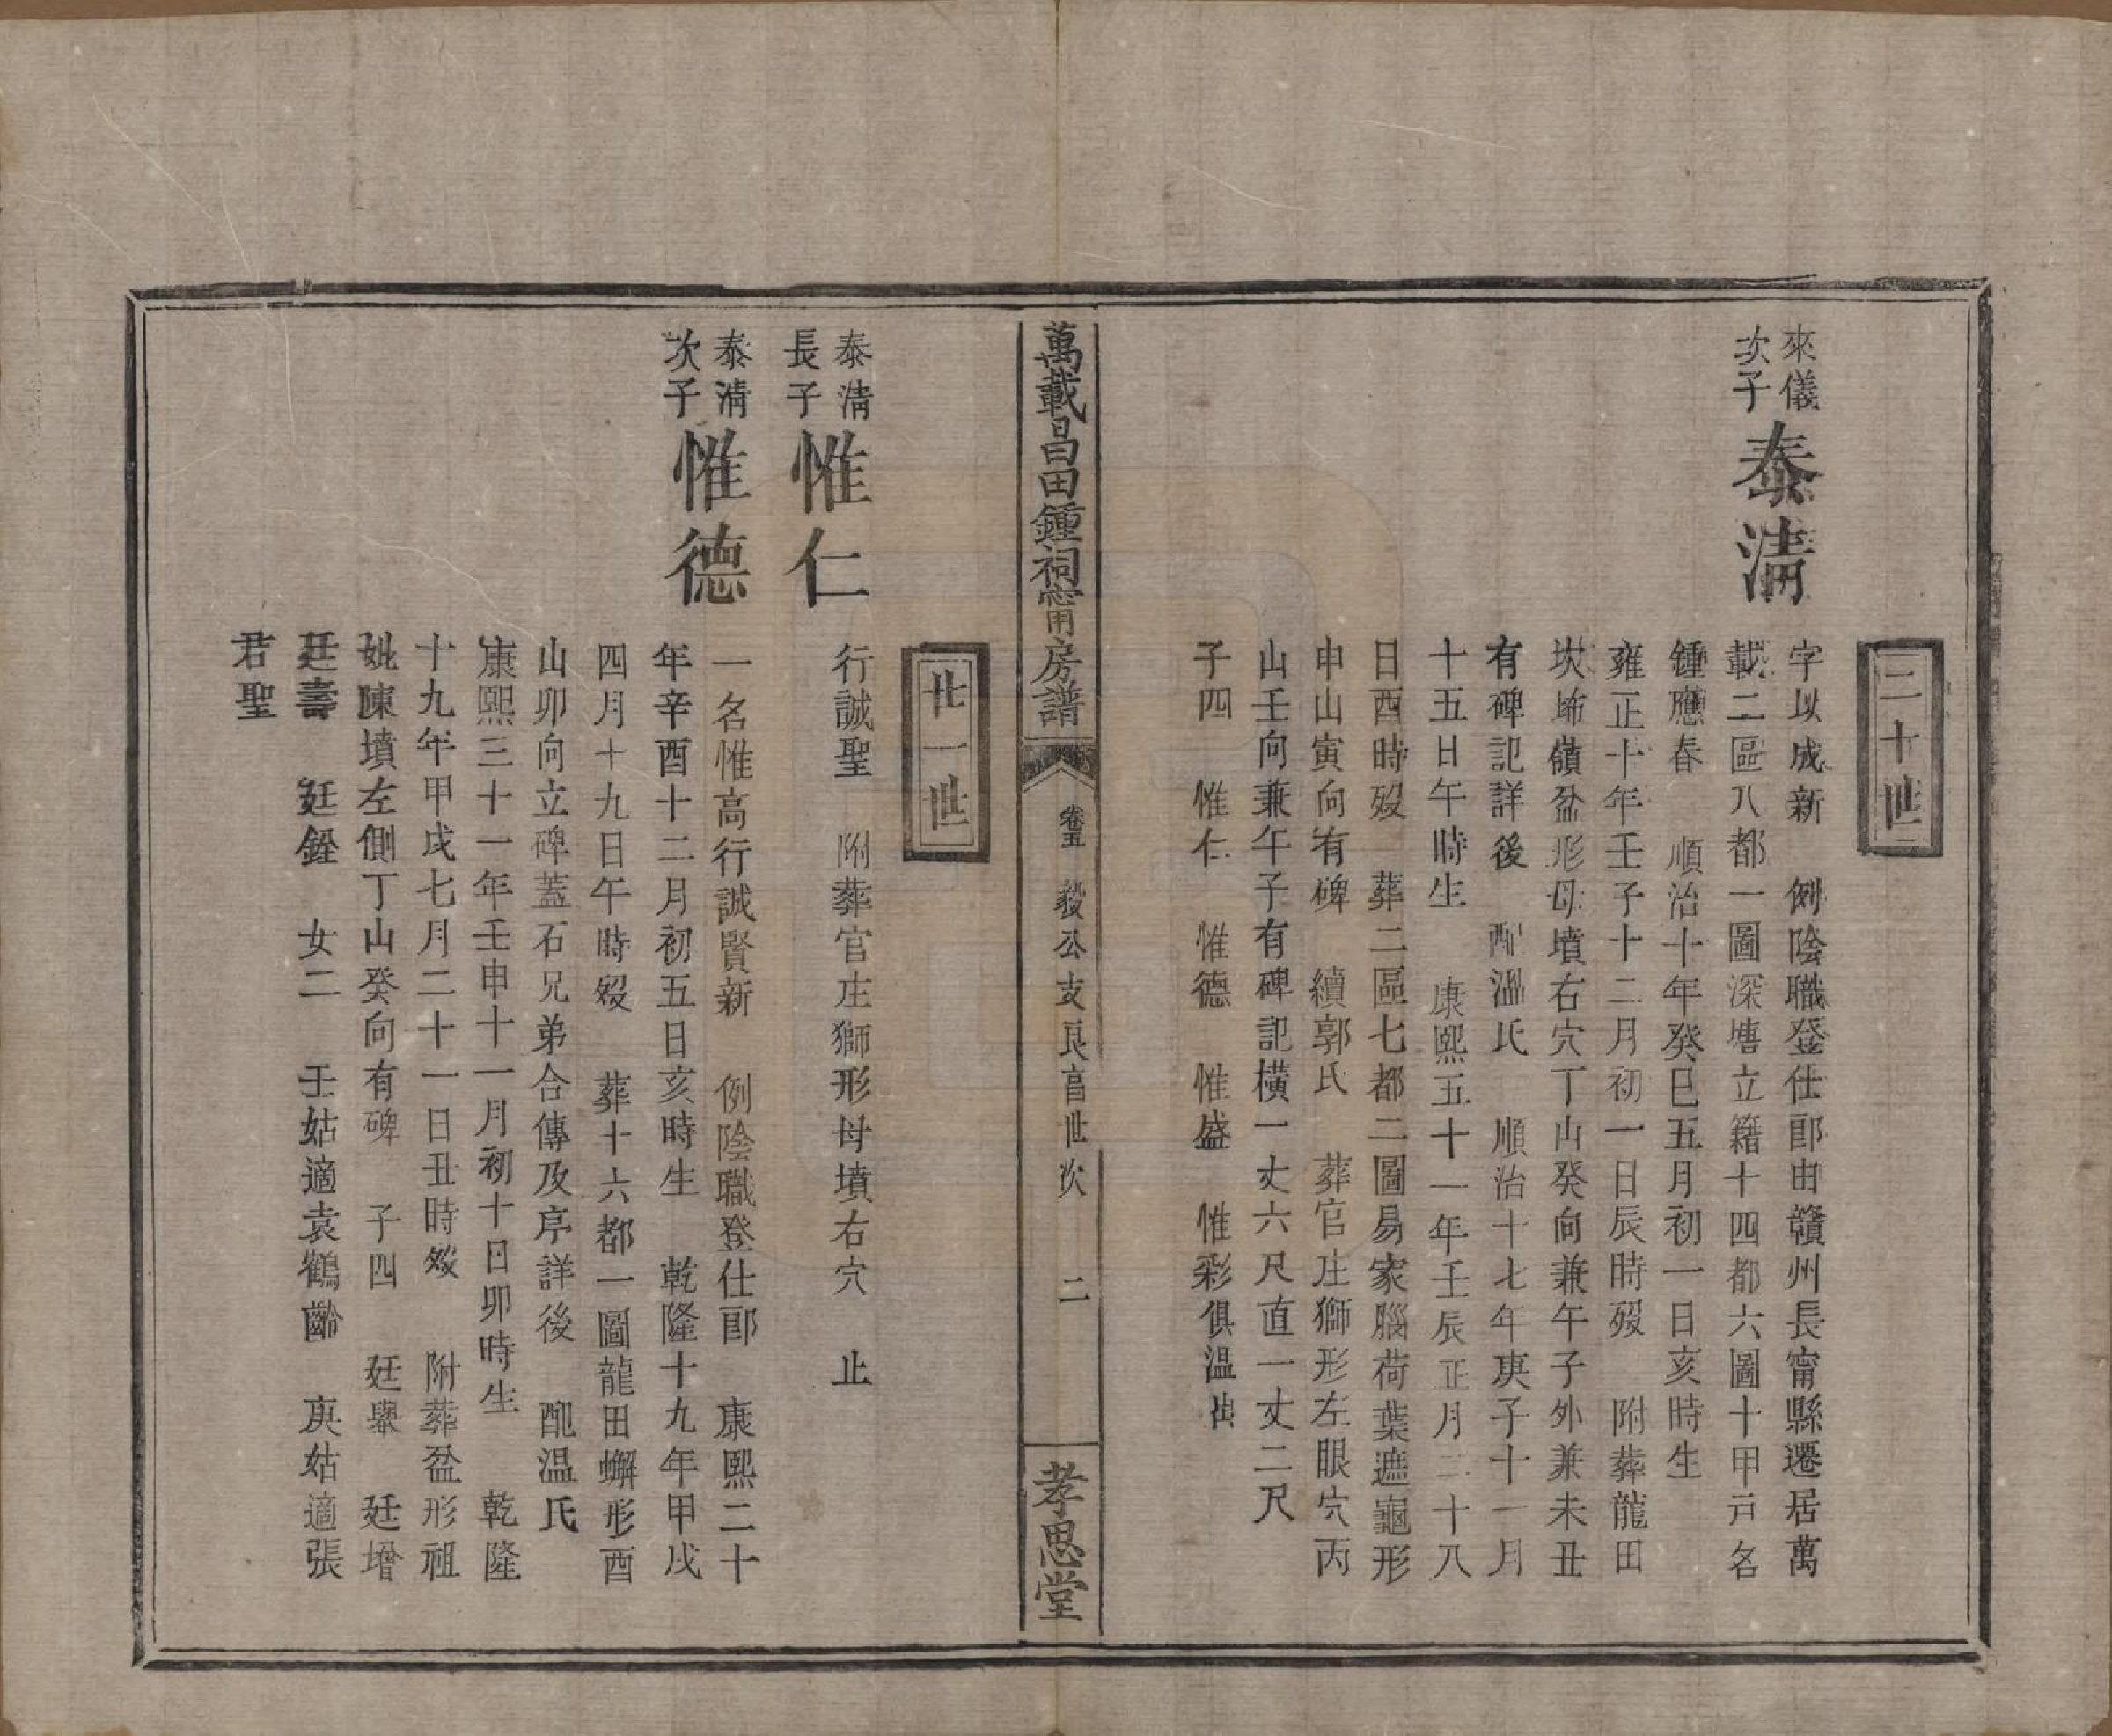 二十世
來儀
次子
泰淸
字以成新　例陰職登仕郎由贛州長甯縣遷居萬
載二區八都一圖深塘立籍十四都六圖十甲戸名
鍾應春　順治十年癸巳五月初一日亥時生
雍正十年壬子十二月初一日辰時歿　附葬龍田
坎㘵嶺盆形母墳右穴丁山癸向兼午子外兼未丑
有碑記詳後　配溫氏　順治十七年庚子十一月
十五日午時生　康熙五十一年壬辰正月二十八
日酉時歿　葬二區七都二圖易家腦荷葉遮龜形
申山寅向有碑　續郭氏　葬官庄獅形左眼穴丙
山壬向兼午子有碑記橫一丈六尺直一丈二尺
子四　惟仁　惟德　惟盛　惟彩俱溫出
萬載昌田鍾祠甯房譜
卷五　毅公支良富世次　二
孝思堂
廿一世
泰淸
長子
惟仁
行誠聖　附葬官庄獅形母墳右穴　止
泰淸
次子
惟德
一名惟高行誠賢新　例陰職登仕郎　康熙二十
年辛酉十二月初五日亥時生　乾隆十九年甲戌
四月十九日午時歿　葬十六都一圖龍田蠏形酉
山卯向立碑蓋石兄弟合傳及序詳後　配溫氏
康熙三十一年壬申十一月初十日卯時生　乾隆
十九年甲戌七月二十一日丑時歿　附葬盆形祖
妣陳墳左側丁山癸向有碑　子四　廷舉　廷增
廷壽　廷銓　女二　壬姑適袁鶴齡　庚姑適張
君聖